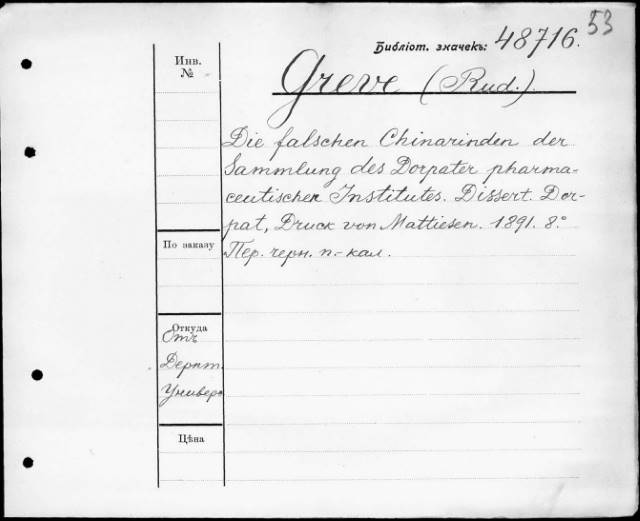 53
Библіот. значекъ: 48716.
Инв.
№
Greve (Rud.)
Die falschen Chinarinden der
Sammlung des Dorpater pharma-
ceutischen Institutes. Dissert. Dor-
pat, Druck von Mattiesen. 1891. 8.°
По заказу
Пер. черн. п.-кал.
Откуда
Отъ
Дерпт.
Универс
Цѣна